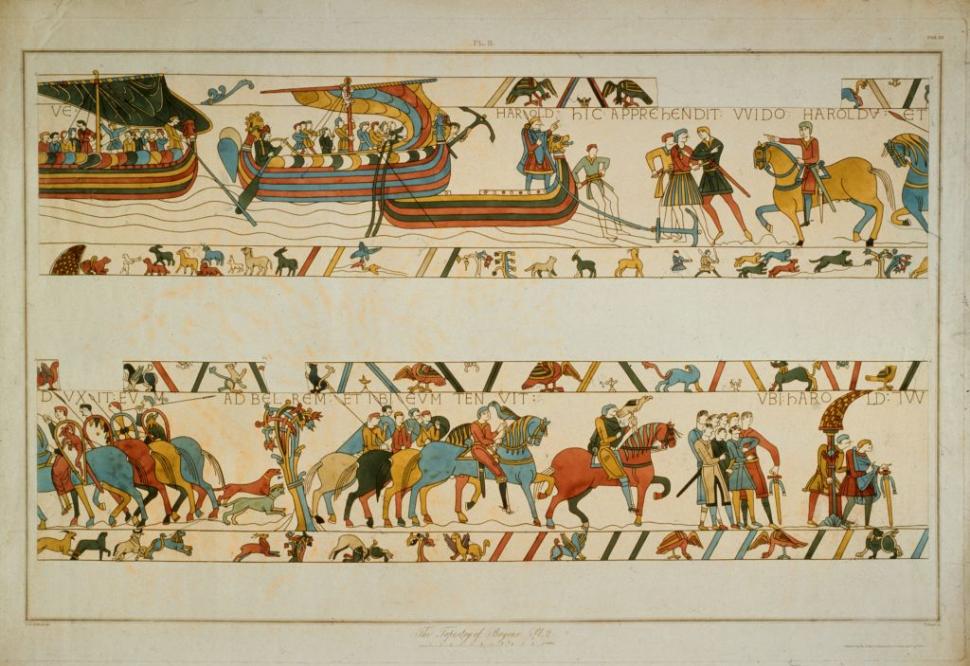 Pl. II.
VE HAROLD: hIC APPREhENDIT: VVIDO: HAROLDV: ET
DVXIT: EVM AD BELREM: ET IBI EVM TENVIT: VBI: hARO LD: IVV
The Tapestry of Bayeux Pl. 2